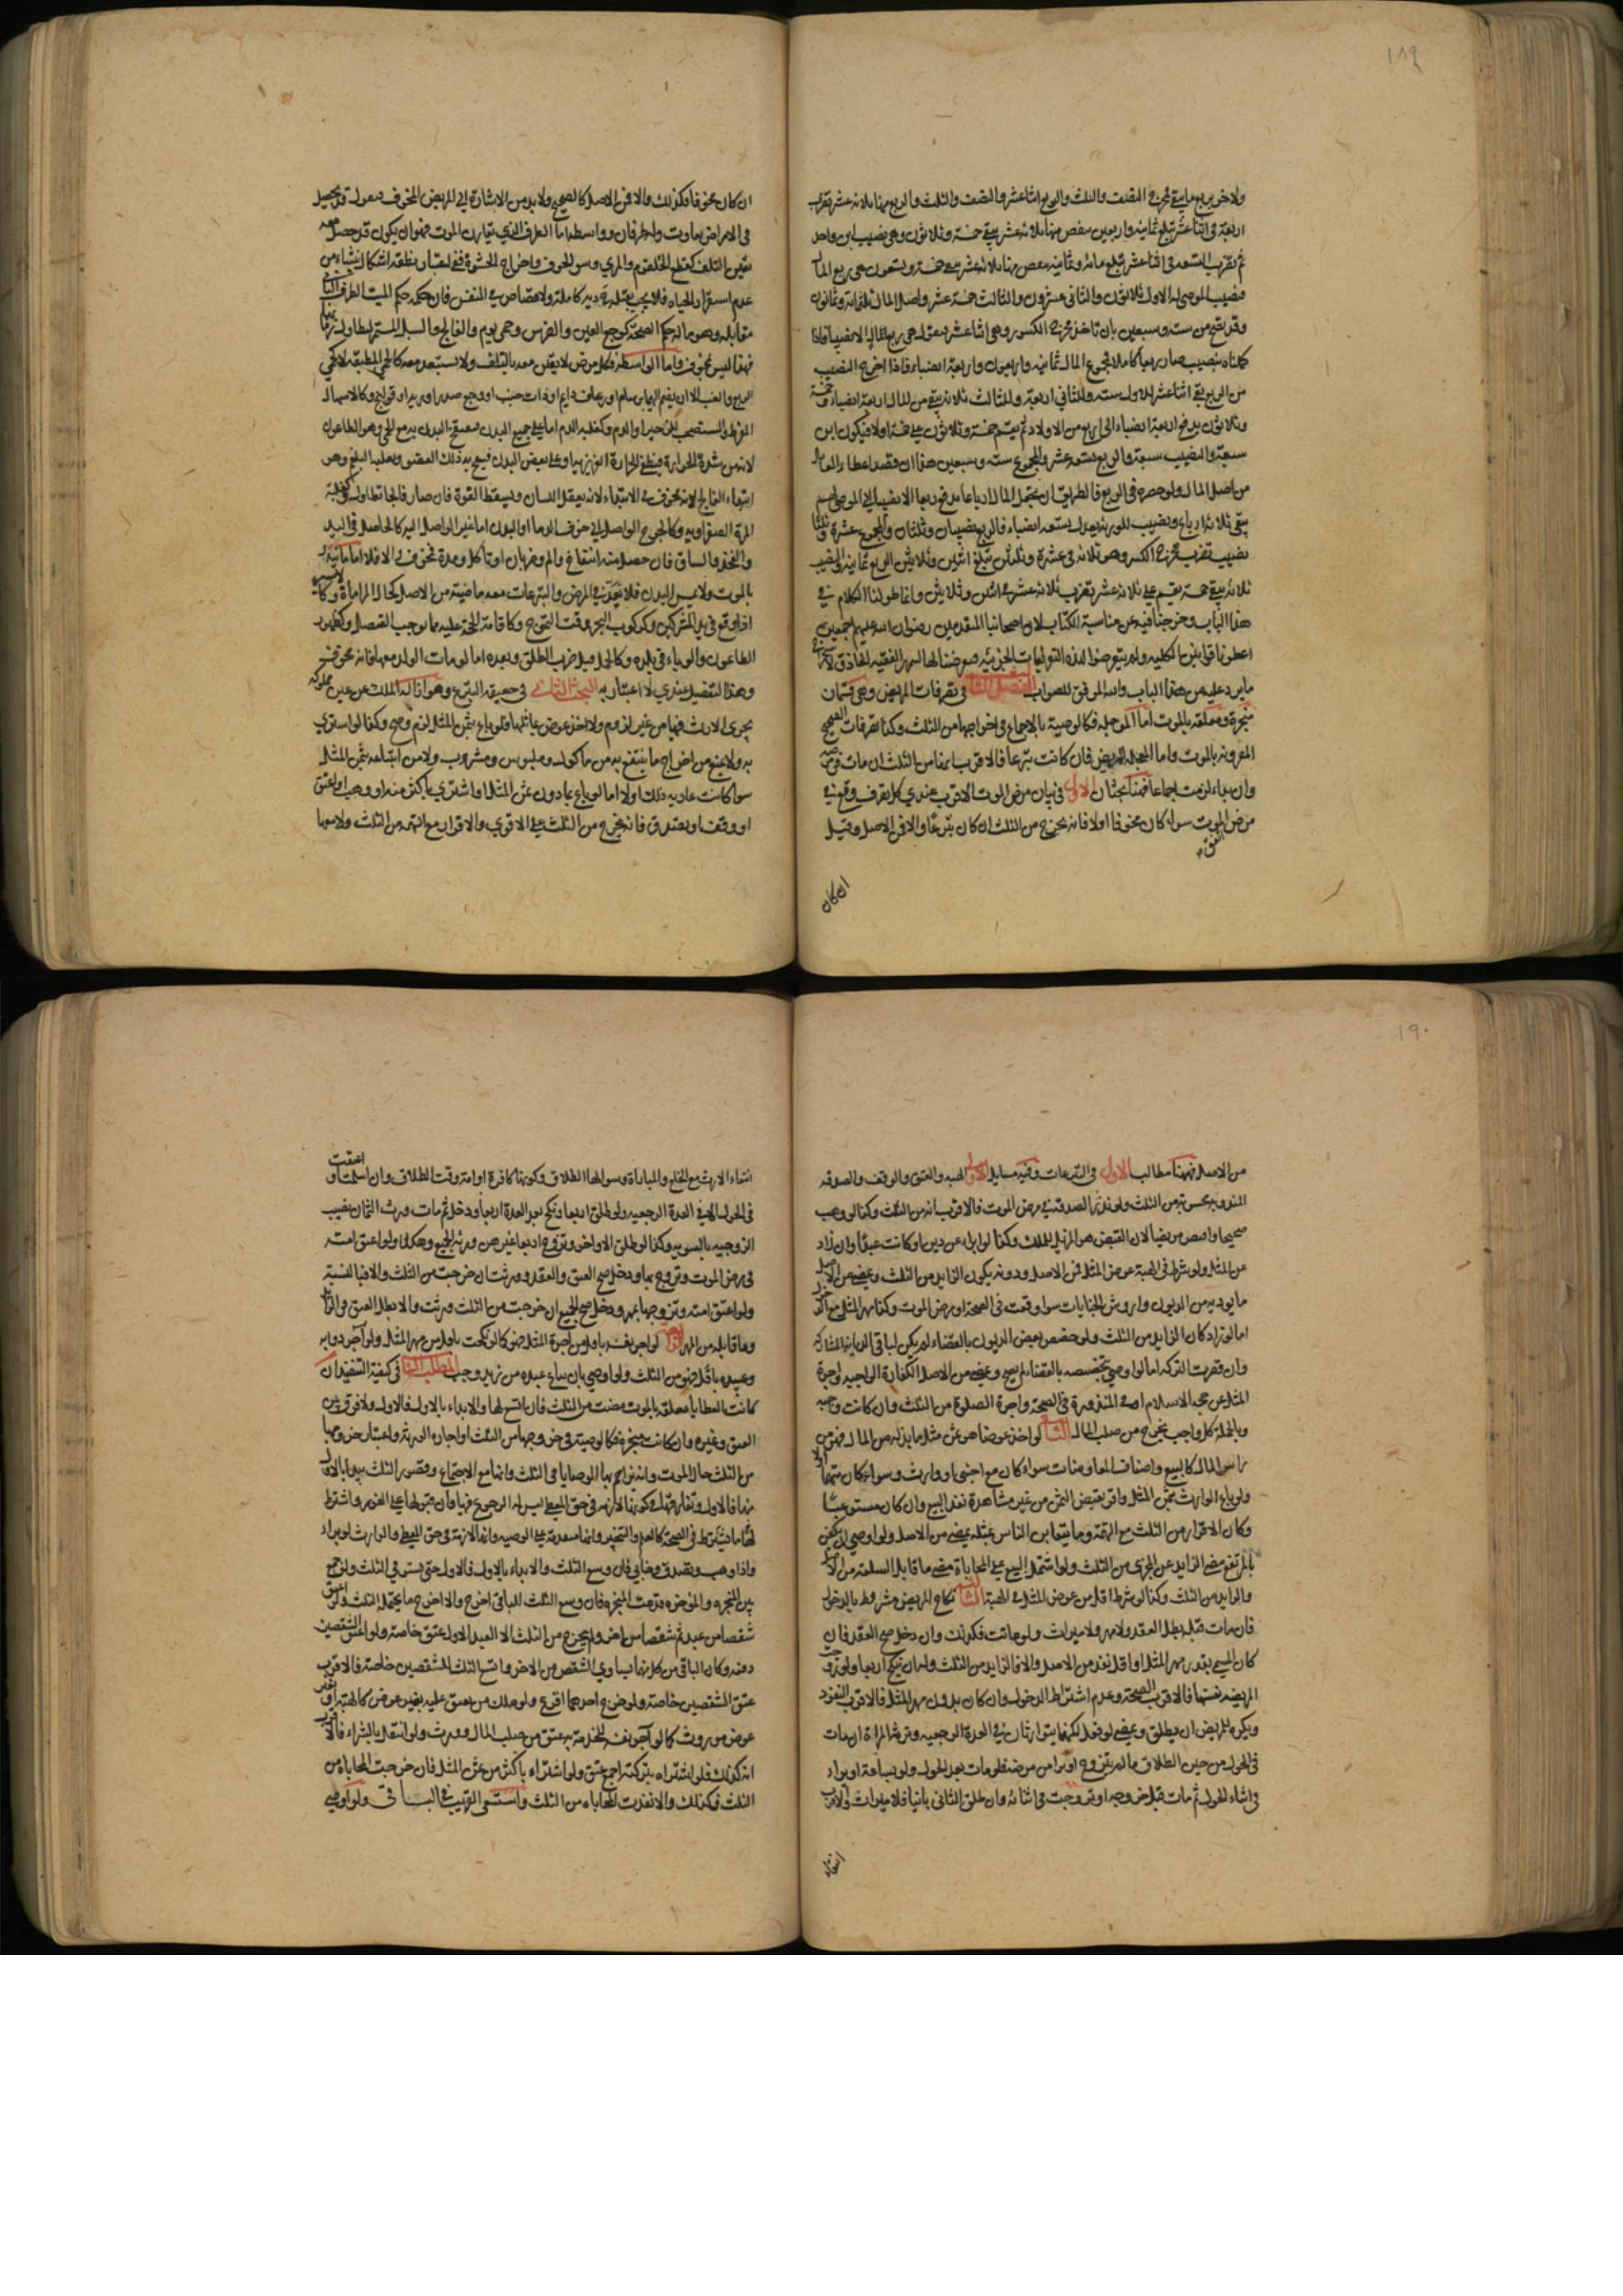 ١٨٩
ولاخر بربع ما يبقى مخرج النصف والثلث والربع اثنا عشر والنصف والثلث والربع منها ثلاثة عشر تضرب
اربعة في اثنا عشر تبلغ ثمانية واربعين ينقص منها ثلاثة عشر يبقى خمسة وثلاثون وهي نصيب ابن واحد
ثم تضرب التسعة في اثنا عشر تبلغ مائة وثمانية ينقص منها ثلاثة عشر يبقى خمسة وتسعون هي ربع المال
فنصيب الموصى له الاول ثلاثون والثاني عشرون والثالث خمسة عشر واصل المال ثلثمائة وثمانون
وقد يصح من ستة وسبعين بان تاخذ مخرج الكسور وهي اثنا عشر فنقول هي ربع المال الا نصيبا فاذا
كملناه بنصيب صار ربعا كاملا فجميع المال ثمانية واربعون واربعة انصباء فاذا اخرج النصيب
من الربع بقي اثنا عشر للاول ستة وللثاني اربعة وللثالث ثلاثة يبقى من المال اربعة انصباء وخمسة
وثلاثون يدفع اربعة انصباء الى اربع من الاولاد ثم يقسم خمسة وثلاثون على خمسة اولاد فيكون لكل ابن
سبعة والنصيب سبعة والربع تسعة عشر والمجموع ستة وسبعين هذا ان قصد اعطاء العايل
من اصل المال ولو حصره في الربع فالطريق ان يجعل المال ارباعا يدفع ربعا الا نصيبا الى الموصى لهم
يبقى ثلاثة ارباع ونصيب للورثة يعدل تسعة انصباء فالربع نصيبان وثلثان والمجموع عشرة وثلثا
نصيب تضرب مخرج الكسر وهو ثلاثة في عشرة وثلثين تبلغ اثنين وثلاثين الربع ثمانية والنصيب
ثلاثة يبقى خمسة يقسم على ثلاثة عشر تضرب ثلاثة عشر في اثنين وثلاثين وانما طولنا الكلام في
هذا الباب وخرجنا فيه عن مناسبة الكتاب لان اصحابنا المتقدمين رضوان الله عليهم اجمعين
اعطونا قوانين كلية ولم يتعرضوا لهذه التفريعات الجزئية فعرضنا لها ليمهر الفقيه الحاذق لاكثر
ما يرد عليه من هذا الباب والله الموفق للصواب الفصل الثالث في تصرفات المريض وهي قسمان
منجزة ومعلقة بالموت اما المؤجلة فكالوصية بالاجماع في اخراجها من الثلث وكذا تصرفات الصحيح
المقرونة بالموت واما المعجلة للمريض فان كانت تبرعا فالاقرب انها من الثلث ان مات في مرضه
وان براء لزمت اجماعا فهنا بحثان الاول في بيان مرض الموت الاقرب عندي كل تصرف وقع في
مرض اتفق الموت سواء كان مخوفا اولا فانه يخرج من الثلث ان كان تبرعا والا فمن الاصل وقيل
ان كان
ان كان مخوفا فكذلك والا فمن الاصل كالصحيح ولا بد من الاشارة الى المرض المخوف فنقول قد يحصل
في الامراض تفاوت ولها طرفان وواسطة اما الطرف الذي يقارن الموت فهو ان يكون قد حصل معه
يقين التلف كقطع الحلقوم والمري وشق الجوف واخراج الحشوة ففي اعتبار نطقه اشكال ينشاء من
عدم استقرار الحياة فلا يجب بقتله دية كاملة ولا قصاص في النفس فان حكمه حكم الميت الطرف الثاني
مقابله وهو ما له حكم الصحة كوجع العين والضرس وحمى يوم والفالج والسل المستمر لتطاول زمانه
فهذا ليس بمخوف واما الواسطة فكل مرض لا يتيقن معه بالتلف ولا يستبعد معه كالحمى المطبقة لا كحمى
الربع والغب الا ان ينضم اليها برسام او رعاف دايم او ذات جنب او وجع صدر او رية او قولنج وكالاسهال
المفرط والمستصحب للزحير او الدم وكغلبة الدم اما على جميع البدن فينتفخ البدن به مع الحمى وهو الطاعون
لانه من شدة الحرارة فيطفى الحرارة الغريزية او على بعض البدن فينتفخ به ذلك العضو وغلبة البلغم وهو
ابتداء الفالج لانه مخوف في الابتداء لانه يعقل اللسان ويسقط القوة فان صار فالجا تطاول وكغلبة
المرة الصفراوية وكالجرح الواصل الى جوف الدماغ او البدن اما غير الواصل اليه كالحاصل في اليد
والفخذ والساق فان حصل منه انتفاخ والم وضربان او تاكل ومدة فمخوف والا فلا اما ما يتهدد
بالموت ولا يمس البدن فلا يعد في المرض والتبرعات معه ماضية من الاصل كحال المراماة وكالاسير
اذا وقع في يد المشركين وكركوب البحر وقت التموج وكاقامة الحجة عليه بما يوجب القتل وكظهور
الطاعون والوباء في بلده وكالحامل قبل ضرب الطلق وبعده اما لو مات الولد معها فانه مخوف
وهذا التفصيل عندي لا اعتبار به البحث الثاني في حقيقة التبرع وهو ازالة الملك عن عين مملوكة
يجري الارث فيها من غير لزوم ولا اخذ عوض يماثلها فلو باع بثمن المثل لزم وصح وكذا لو اشترى
به ولا يمنع من اخراج ما ينتفع به من ماكول وملبوس ومشروب ولا من ابتياعه بثمن المثل
سواء كانت عادته ذلك اولا اما لو باع بدون ثمن المثل او اشترى باكثر منه او وهب او اعتق
او وقف او تصدق فانه يخرج من الثلث على الاقوى والاقرار مع التهمة من الثلث ولا معها
١٩٠
من الاصل فههنا مطالب الاول في التبرعات وفيه مسايل الاول الهبة والعتق والوقف والصدقة
المندوبة محسوبة من الثلث ولو نذر الصدقة في مرض الموت فالاقرب انه من الثلث وكذا لو وهب
صحيحا واقبض مريضا لان القبض هو المزيل للملك وكذا لو ابراء عن دين او كاتب عبدا وان زاد
عن المثل ولو شرط في الهبة عوض المثل فمن الاصل ودونه يكون الزايد من الثلث ويمضي من الاصل
ما يوديه من الديون واروش الجنايات سواء وقعت في الصحة او مرض الموت وكذا مهر المثل مع الدخول
اما لو زاد كان الزايد من الثلث ولو خصص بعض الديون بالقضاء لم يكن لباقي الديان المشاركة
وان قصرت التركة اما لو اوصى بتخصيصه بالقضاء لم يصح ويمضي من الاصل الكفارة الواجبة واجرة
المثل عن حجة الاسلام او المنذورة في الصحة واجرة الصلوة من الثلث وان كانت واجبة
وبالجملة كل واجب يخرج من صلب المال الثاني لو اخذ عوضا هو ثمن مثل ما بذله من المال فهو من
راس المال كالبيع واصناف المعاوضات سواء كان مع اجنبي او وارث وسواء كان متهما اولا
ولو باع الوارث بثمن المثل واقر بقبض الثمن من غير مشاهدة نفذ البيع وان كان مستوعبا
وكان الاقرار من الثلث مع التهمة وما يتغابن الناس بمثله يمضي من الاصل ولو اوصى ان يكفن
بالمرتفع مضى الزايد عن المجزي من الثلث ولو اشتمل البيع على المحاباة مضى ما قابل السلعة من الاصل
والزايد من الثلث وكذا لو شرط اقل من عوض المثل في الهبة الثالث نكاح المريض مشروط بالدخول
فان مات قبله بطل العقد ولا مهر ولا ميراث ولو ماتت فكذلك وان دخل صح العقد فان
كان المسمى بقدر مهر المثل او اقل نفذ من الاصل والا فالزايد من الثلث وله ان ينكح اربعا ولو زوجت
المريضة نفسها فالاقرب الصحة وعدم اشتراط الدخول وان كان بدون مهر المثل فالاقرب النفوذ
ويكره للمريض ان يطلق ويمضي لو فعل لكنهما يتوارثان في العدة الرجعية وترثه المراة ان مات
في الحول من حين الطلاق ما لم يتزوج او يبرا من مرضه فلو مات بعد الحول ولو بساعة او براء
في اثناء الحول ثم مات قبل خروجه او تزوجت في اثنائه وان طلق الثاني باينا فلا ميراث والاقرب
انتفاء
انتفاء الارث مع الخلع والمباراة وسوالها الطلاق وكونها كافرة او امة وقت الطلاق وان اسلمت او اعتقت
في الحول الا في العدة الرجعية ولو طلق اربعا ونكح بعد العدة اربعا ودخل ثم مات ورث الثمان نصيب
الزوجية بالسوية وكذا لو طلق الاواخر وتزوج اربعا غيرهن ورثه الجميع وهكذا ولو اعتق امته
في مرض الموت وتزوج بها ودخل صح العتق والعقد وورثت ان خرجت من الثلث والا فبالنسبة
ولو اعتق امته وتزوجها بمهر ودخل صح الجميع ان خرجت من الثلث وورثت والا بطل العتق في الزايد
وما قابله من المهر الرابع لو اجر نفسه باقل من اجرة المثل فهو كما لو نكحت باقل من مهر المثل ولو آجر دوابه
وعبيده باقل فهو من الثلث ولو اوصى بان يباع عبده من زيد وجب المطلب الثاني في كيفية التنفيذ ان
كانت العطايا معلقة بالموت مضت من الثلث فان اتسع لها والا بدء بالاول فالاول ولا فرق بين
العتق وغيره وان كانت منجزة فكالوصية في خروجها من الثلث او اجازة الورثة واعتبار خروجها
من الثلث حال الموت وانه يزاحم بها الوصايا في الثلث وانها مع الاجتماع وقصور الثلث يبدا بالاول
منها فالاول وتفارقها في كونها لازمة في حق المعطي ليس له الرجوع فيها وان قبولها على الفور واشتراط
لها ما يشترط في الصحة كالعلم والتنجيز وانها متقدمة على الوصية وانها لازمة في حق المعطي والوارث لو براء
واذا وهب وتصدق وحابى فان وسع الثلث والا بدء بالاول فالاول حتى يستوفي الثلث ولو جمع
بين المنجزة والمؤخرة قدمت المنجزة فان وسع الثلث للباقي اخرج والا اخرج ما يحتمله الثلث ولو اعتق
شقصا من عبد ثم شقصا من اخر ولم يخرج من الثلث الا العبد الاول عتق خاصة ولو اعتق الشقصين
دفعة وكان الباقي من كل منهما يساوي الشقص من الاخر واتسع الثلث للشقصين خاصة فالاقرب
عتق الشقصين خاصة ولو خرج احدهما اقرع ولو ملك من يعتق عليه بغير عوض كالهبة او بغير
عوض موروث كما لو آجر نفسه للخدمة به عتق من صلب المال وورث ولو انتقل بالشراء فالاقرب
انه كذلك فلو اشتراه بتركته اجمع عتق ولو اشتراه باكثر من ثمن المثل فان خرجت المحاباة من
الثلث فكذلك والا نفذت المحاباة من الثلث واستسعى القريب في الباقي ولو اوصى